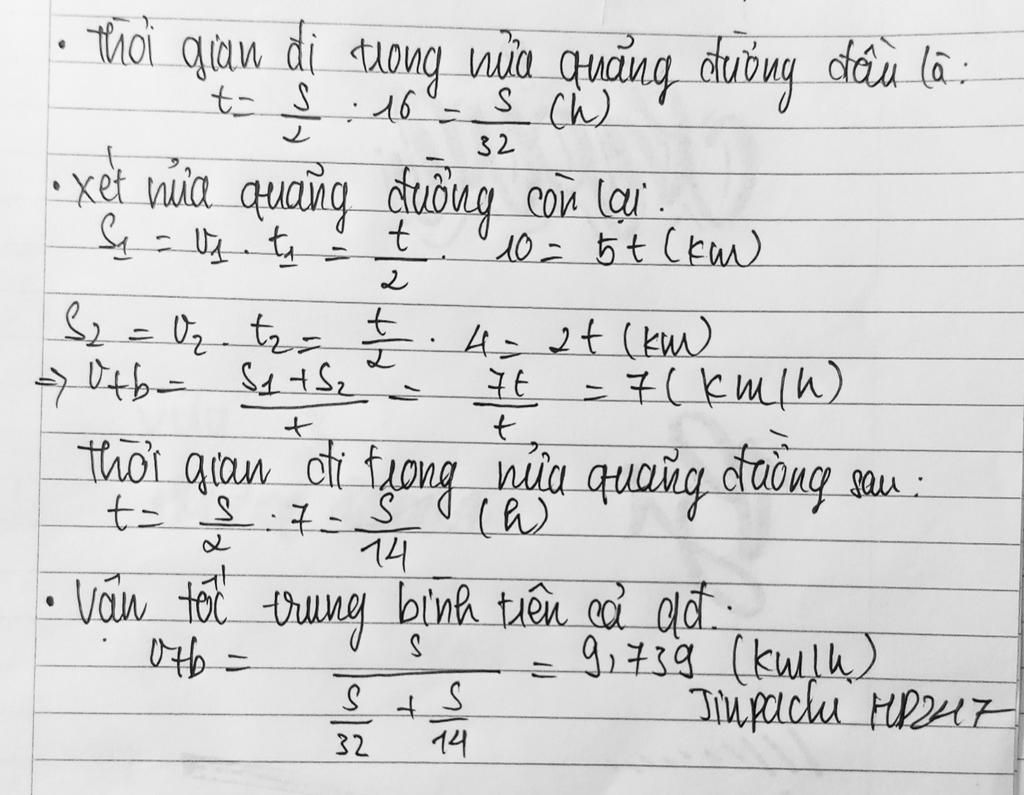 • Thời gian đi trong nửa quảng đường đầu là:
t = S/2 : 16 = S/32 (h)
• Xét nửa quãng đường còn lại.
S1 = v1 . t1 = t/2 . 10 = 5t (km)
S2 = v2 . t2 = t/2 . 4 = 2t (km)
=> vtb = S1 + S2/t = 7t/t = 7 (km/h)
Thời gian đi trong nửa quãng đường sau:
t = S/2 : 7 = S/14 (h)
• Vận tốc trung bình trên cả qđ.
vtb = S/(S/32 + S/14) = 9,739 (km/h)
Jinpachi HP247